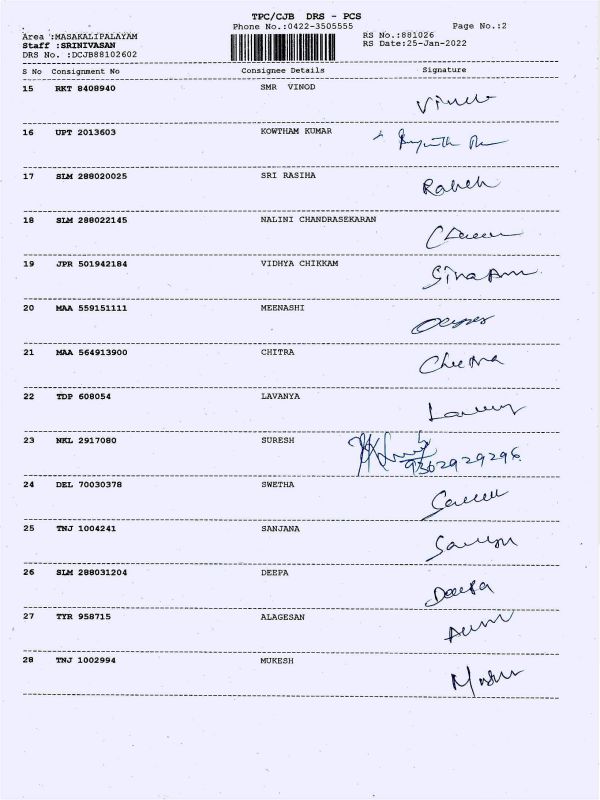 TPC/CJB DRS - PCS
Phone No.:0422-3505555 Page No.:2
Area :MASAKALIPALAYAM RS No.:881026
Staff :SRINIVASAN RS Date:25-Jan-2022
DRS No. :DCJB88102602
S No Consignment No Consignee Details Signature
15 RKT 8408940 SMR VINOD
16 UPT 2013603 KOWTHAM KUMAR
17 SLM 288020025 SRI RASIHA
18 SLM 288022145 NALINI CHANDRASEKARAN
19 JPR 501942184 VIDHYA CHIKKAM
20 MAA 559151111 MEENASHI
21 MAA 564913900 CHITRA
22 TDP 608054 LAVANYA
23 NKL 2917080 SURESH
9362929296
24 DEL 70030378 SWETHA
25 TNJ 1004241 SANJANA
26 SLM 288031204 DEEPA Deepa
27 TYR 958715 ALAGESAN
28 TNJ 1002994 MUKESH